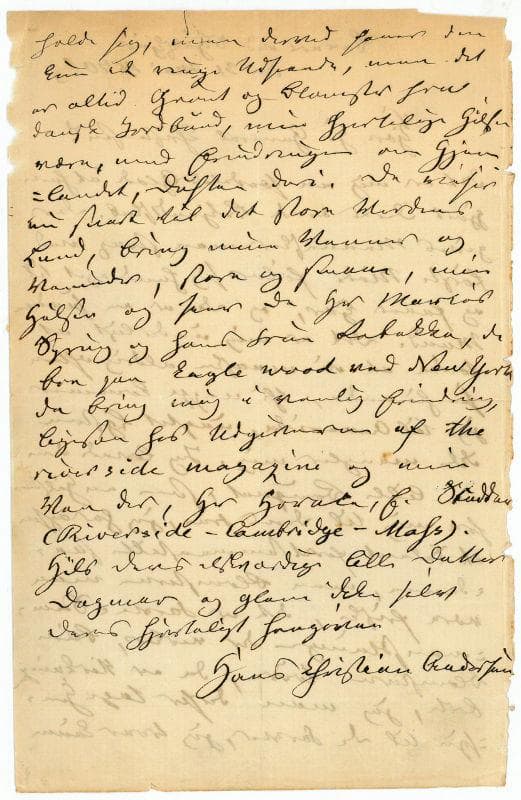 holde sig, men derved faaer den
kun et ringe Udseende, men det
er altid Grønt og Blomster fra
dansk Jordbund, min hjertelige Hilsen
være, med Erindringen om Hjem
=landet, Duften deri. De reiser
nu snart til det store Verdens
Land, bring mine Venner og
Veninder, store og smaae, min
Hilsen og seer De Hr Marcus
Spring og hans Frue Rebekka, de
boe paa Eagle wood ved New York
da bring mig i venlig Erindring,
ligesom hos Udgiveren af the
riverside magazine og min
Ven der, Hr Horace, E. Scudder
(Riverside - Cambridge - Mass).
Hils Deres elskværdige lille Datter
Dagmar og glem ikke selv
Deres hjerteligt hengivne
Hans Christian Andersen